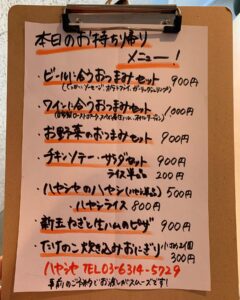 本日のお持ち帰り
メニュー!
・ビールに合うおつまみセット 900円
・ワインに合うおつまみセット 1,000円
・お野菜のおつまみセット 900円
・チキンソテー・サラダセット 900円
ライス単品 200円
・ハヤシヤのハヤシ(ハヤシ単品) 500円
ハヤシライス 800円
・新玉ねぎと生ハムのピザ 900円
・たけのこ炊き込みおにぎり 小さめ2個 300円
ハヤシヤ TEL 03-6314-5729
事前のご予約でお渡しがスムーズです!